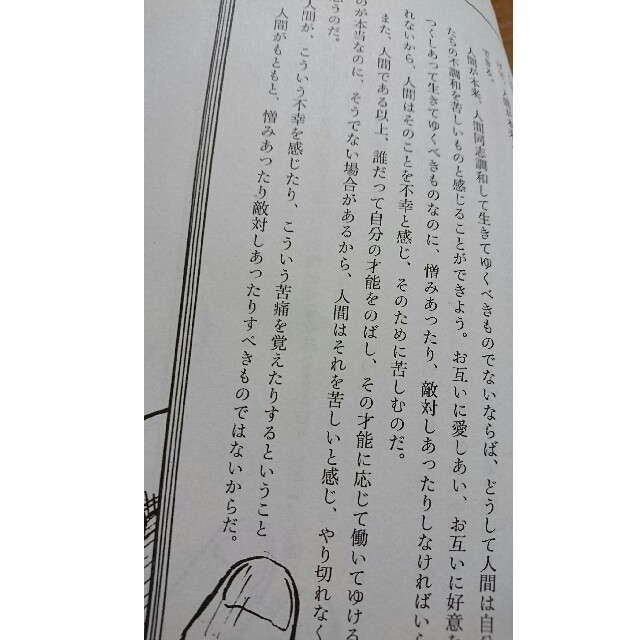 できる。
人間が本来、人間同志調和して生きてゆくべきものでないならば、どうして人間は自
たちの不調和を苦しいものと感じることができよう。お互いに愛しあい、お互いに好意
つくしあって生きてゆくべきものなのに、憎みあったり、敵対しあったりしなければいら
れないから、人間はそのことを不幸と感じ、そのために苦しむのだ。
また、人間である以上、誰だって自分の才能をのばし、その才能に応じて働いてゆける
のが本当なのに、そうでない場合があるから、人間はそれを苦しいと感じ、やり切れなく
思うのだ。
人間が、こういう不幸を感じたり、こういう苦痛を覚えたりするということ
人間がもともと、憎みあったり敵対しあったりすべきものではないからだ。